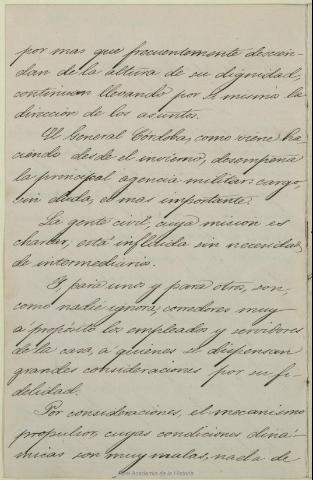 por mas que frecuentemente descien-
dan de la altura de su dignidad,
continuan llevando por si mismo la
direccion de los asuntos.
El General Córdoba, como viene ha-
ciendo desde el invierno, desempeña
la principal agencia militar: cargo,
sin duda, el mas importante.
La gente civil, cuya mision es
charlar, está influida sin necesidad
de intermediario.
Y, para uno y para otros, son,
como nadie ignora, corredores muy
a propósito los empleados y servidores
de la casa, a quienes se dispensan
grandes consideraciones por su fi-
delidad.
Por consideraciones, el mecanismo
propulsor, cuyas condiciones diná-
micas son muy malas, nada de
Real Academia de la Historia